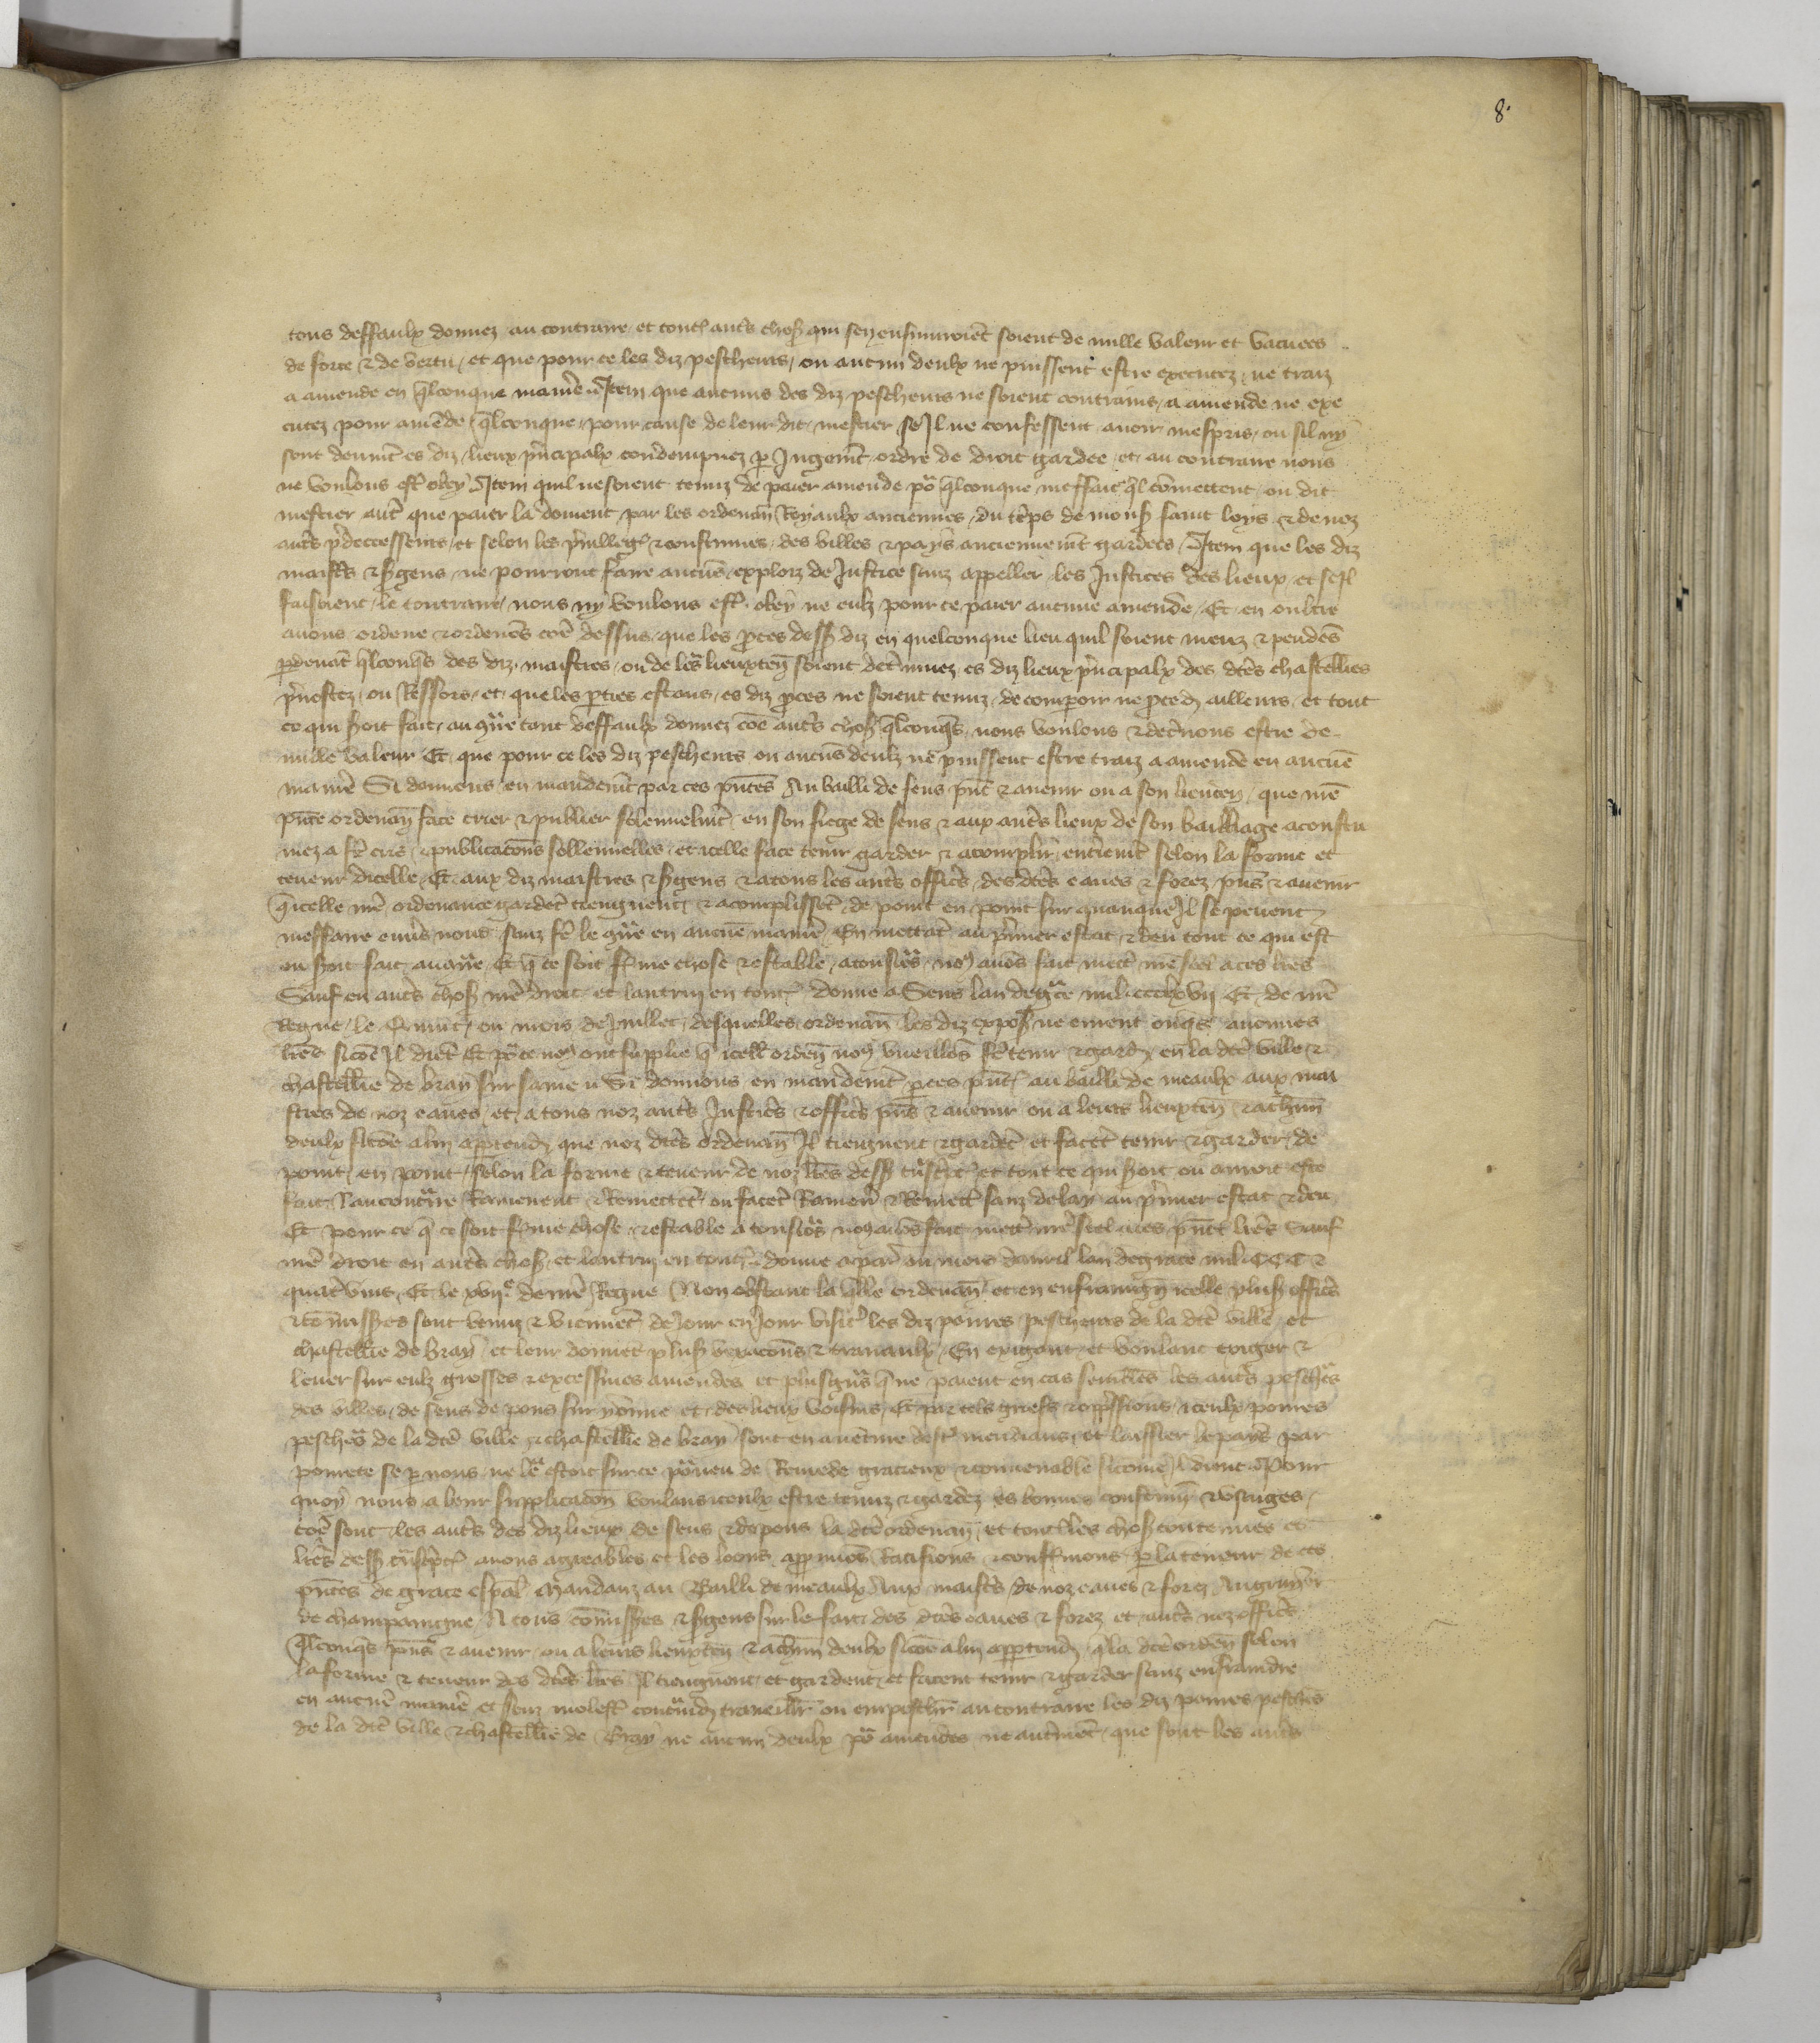 8.
tous deffaulx donnez au contraire et tout autres choses qui sen ensuivroient soient de nulle valeur et vacuees
de force & de vertu / et que pour ce les diz pescheurs / ou aucun deulx ne puissent estre executez / ne traiz
a amende en qlconque maniere Item que aucuns des diz pescheurs ne soient contrains / a amende ne exe
cutez pour amende qlconque / pour cause de leur dit / mestier se Il ne confessent avoir mespris / ou sil ny
sont deument es diz lieux principalx condempnez par Jugement / ordre de droit gardee / et au contraire nous
ne voulons estre obey Item quil ne soient tenuz de paier amende pour qlconque meffait ql commettent ou dit
mestier autre que paier la doivent / par les ordenances Royaulx anciennes / du temps de mons saint loys & de noz
autres predecesseurs / et selon les privilleges & coustumes / des villes & pays anciennement gardees / Item que les diz
maistres & sergens / ne pourront faire aucuns exploiz de Justice sanz appeller les Justices des lieux / et se Il
faisoient le contraire / nous ny voulons estre obey ne eulz pour ce paier aucune amende / Et en oultre
avons ordene & ordenons comme dessus que les proces dessus diz en quelconque lieu quil soient meuz & pendens
par devant qlconques des diz maistres / ou de leurs lieuxten soient determinez es diz lieux principalx des dictes chastellies
prevostez / ou Ressors / et que les parties estans / es diz proces ne soient tenuz / de comparoir ne proceder ailleurs / et tout
ce qui seroit fait / au contraire tant deffaulx donnez comme autres choses qlconques / nous voulons & decernons estre de
nulle valeur Et que pour ce les diz pescheurs ou aucuns deulz ne puissent estre traiz a amende en aucune
maniere Si donnons en mandement par ces presentes Au bailli de sens present & avenir ou a son lieuten / que nostre
presente ordenance face crier & publier solennelment / en son siege de sens & aux autres lieux de son bailliage acoustu
mez a faire cris & publicacions sollennelles / et icelle face tenir garder & acomplir entierement selon la forme et
teneur dicelle / Et aux diz maistres & sergens & a tous les autres officiers des dictes eaues & forez presens & avenir
qicelle nostre ordenance gardent tieignent / & acomplissent de point en point sur quanque Il se pevent
meffaire envers nous sanz faire le contraire en aucune maniere / En mettant au premier estat & deu tout ce qui est
ou seroit fait au contraire / Et que ce soit ferme chose & estable a tousjours nous avons fait mettre nostre seel a ces lettres
Sauf en autres choses nostre droit / et lautrui en toutes Donne a Sens lan de grace mil CCC lxvii Et de nostre
Regne le Quint / ou mois de Juillet / desquelles ordenances les diz exposans ne eurent onques aucunes
lettres sicomme Il dient Et pour ce nous ont supplie que icelle ordenance nous vueillons faire tenir & garder en la dicte ville &
chastellie de bray sur saine Si donnons en mandement par ces presentes au bailli de meaulx aux mai
stres de noz eaues / et a tous noz autres Justiciers & officiers presens & avenir ou a leurs lieuxten & a chascun
deulx sicomme a lui appartendra que noz dictes ordenances Il tieignent & gardent et facent tenir & garder / de
point / en point / selon la forme & teneur de noz lettres dessus transcriptes et tout ce qui seroit ou auroit este
fait / au contraire Ramenent & Remettent / ou facent Ramener & Remettre sanz delay au premier estat & deu
Et pour ce que ce soit ferme chose & estable a tousjours nous avons fait mettre nostre seel a ces presentes lettres Sauf
nostre droit en autres choses et lautrui en toutes Donne a paris ou mois davril lan de grace mil CCC &
quatre vins / Et le xvije de nostre Regne Non obstant la qlle ordenance / et en enfraingnant icelle plusieurs officiers
& commissaires sont venuz & viennent de Jour en Jour visiter les diz povres pescheurs de la dicte ville et
chastellie de bray / et leur donnent plusieurs vexacions & travaulx / En exigant et voulant exiger &
lever sur eulz grosses & excessives amendes et plusgrans que ne paient en cas semblables les autres pescheurs
des villes / de sens de pons sur yonne et / des lieux voisins / Et par tels griefs & oppressions iceulx povres
pescheurs de la dicte ville & chastellie de bray sont en aventure destre mendians / et laissier le pays par
povrete se par nous / ne leur estoit sur ce pourveu de Remede gracieux & convenable sicomme Il dient Pour
quoy nous a leur supplicacion voulans iceulx estre tenuz & gardez es bonnes coustumes & usaiges /
comme sont les autres des diz lieux de sens & de pons la dicte ordenance et toutes les choses contenues es
lettres dessus transcriptes avons agreables et les loons approuvons Ratifions & confermons par la teneur de ces
presentes de grace especial Mandanz au Bailli de meaulx Aux maistres de noz eaues & forez Au gruyer
de champaingne A tous commissaires & sergens sur le fait des dictes eaues & forez et autres noz officiers
qlconques presens & avenir / ou a leurs lieuxten & a chascun deulx sicomme a lui appartendra q la dicte ordenance selon
la forme & teneur des dictes lettres Il tieignent / et gardent / et facent tenir & garder sanz enfraindre
en aucune maniere et sanz molester contraindre traveillier ou empeschier au contraire les diz povres pescheurs
de la dicte ville & chastellie de Bray ne aucun deulx pour amendes ne autrement / que sont les autres